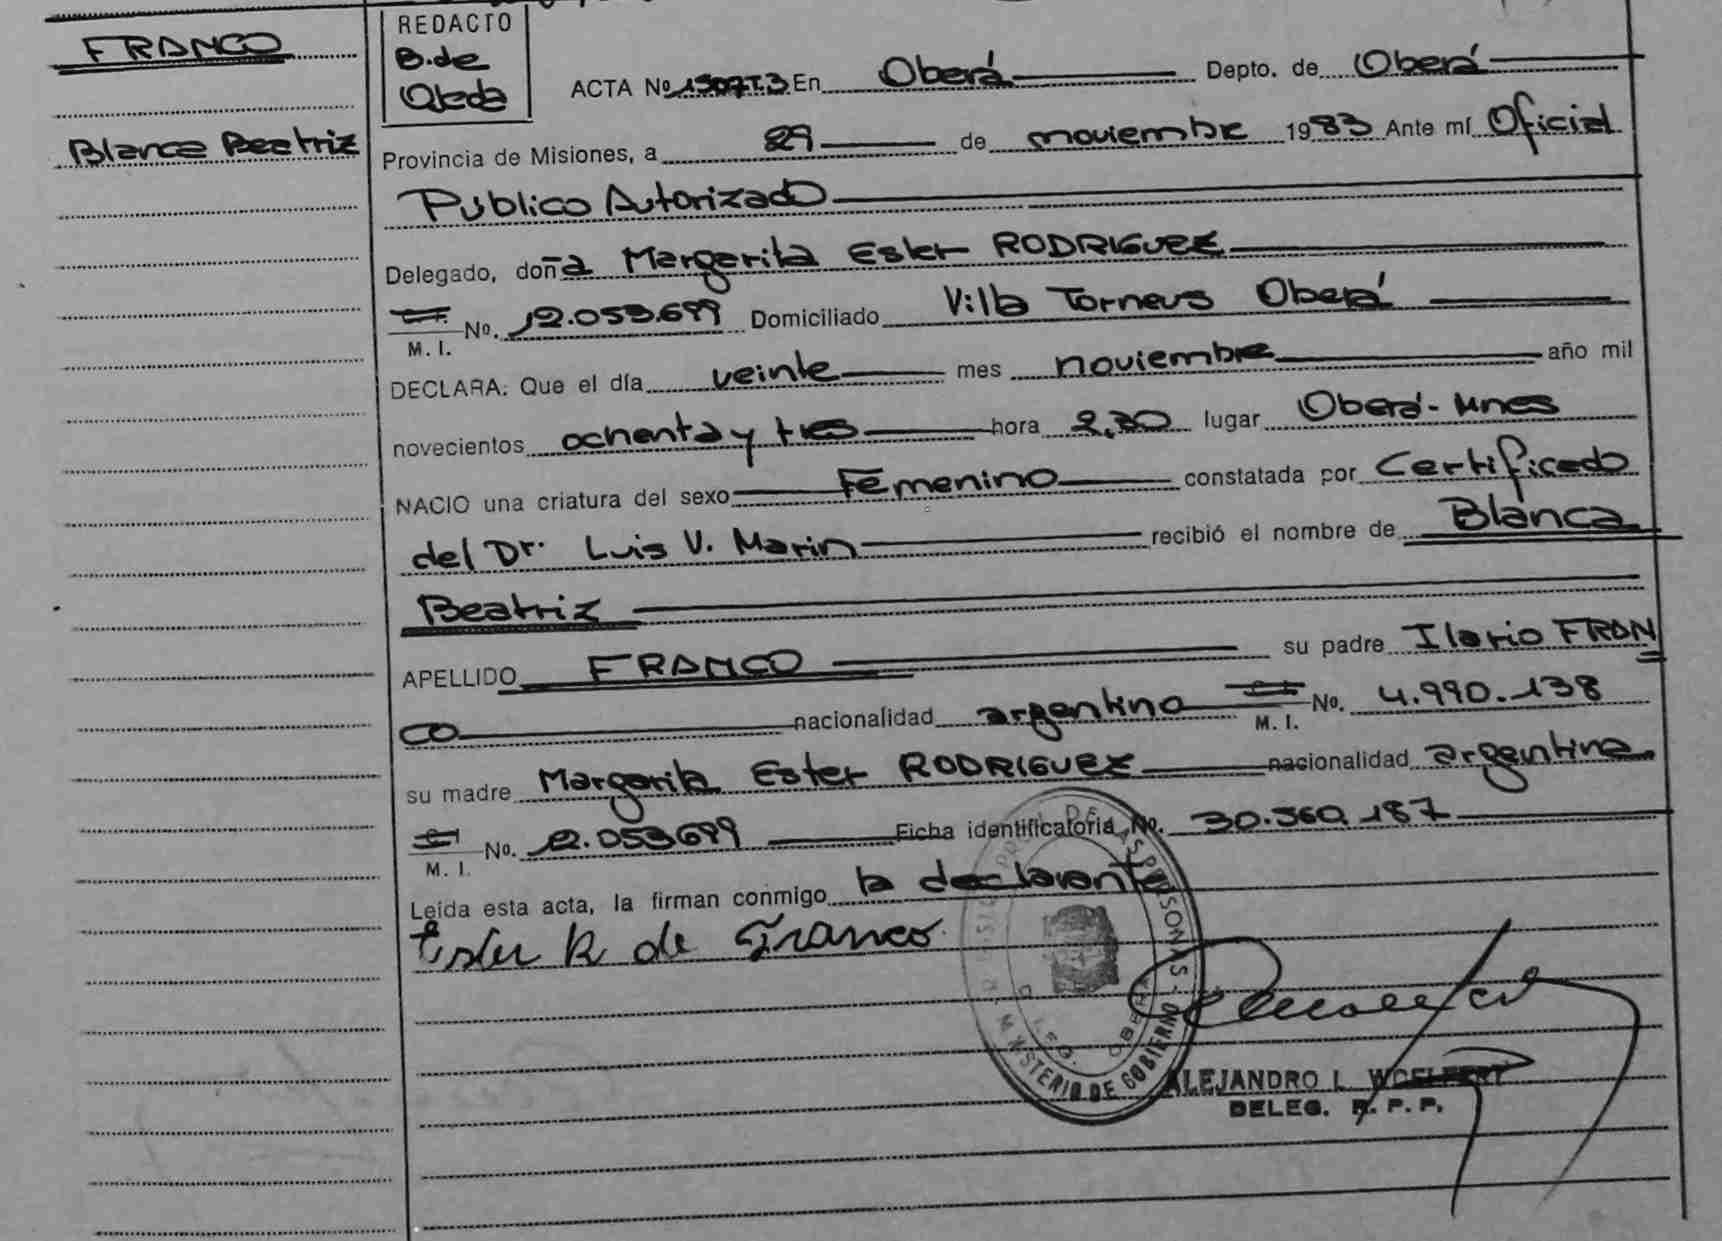 FRANCO
Blanca Beatriz
REDACTO
B. de
Ojeda
ACTA No 1507T.3 En Oberá Depto. de Oberá
Provincia de Misiones, a 29 de noviembre 1983 Ante mí Oficial
Publico Autorizado
Delegado, doña Margarita Ester RODRIGUEZ
M. I. No. 12.053.699 Domiciliado Villa Torneus Oberá
DECLARA: Que el día veinte mes noviembre año mil
novecientos ochenta y tres hora 2,30 lugar Oberá - Mnes
NACIO una criatura del sexo Femenino constatada por Certificado
del Dr. Luis V. Marin recibió el nombre de Blanca
Beatriz
APELLIDO FRANCO su padre Ilario FRAN
CO nacionalidad argentino M. I. No. 4.990.138
su madre Margarita Ester RODRIGUEZ nacionalidad argentina
M. I. No. 12.053699 Ficha identificatoria No. 30.360.187
Leída esta acta, la firman conmigo la declarante
Ester R de Franco
DE LAS PERSONAS - MINISTERIO DE GOBIERNO
OBERA
ALEJANDRO L. WOELFERT
DELEG. R. P. P.